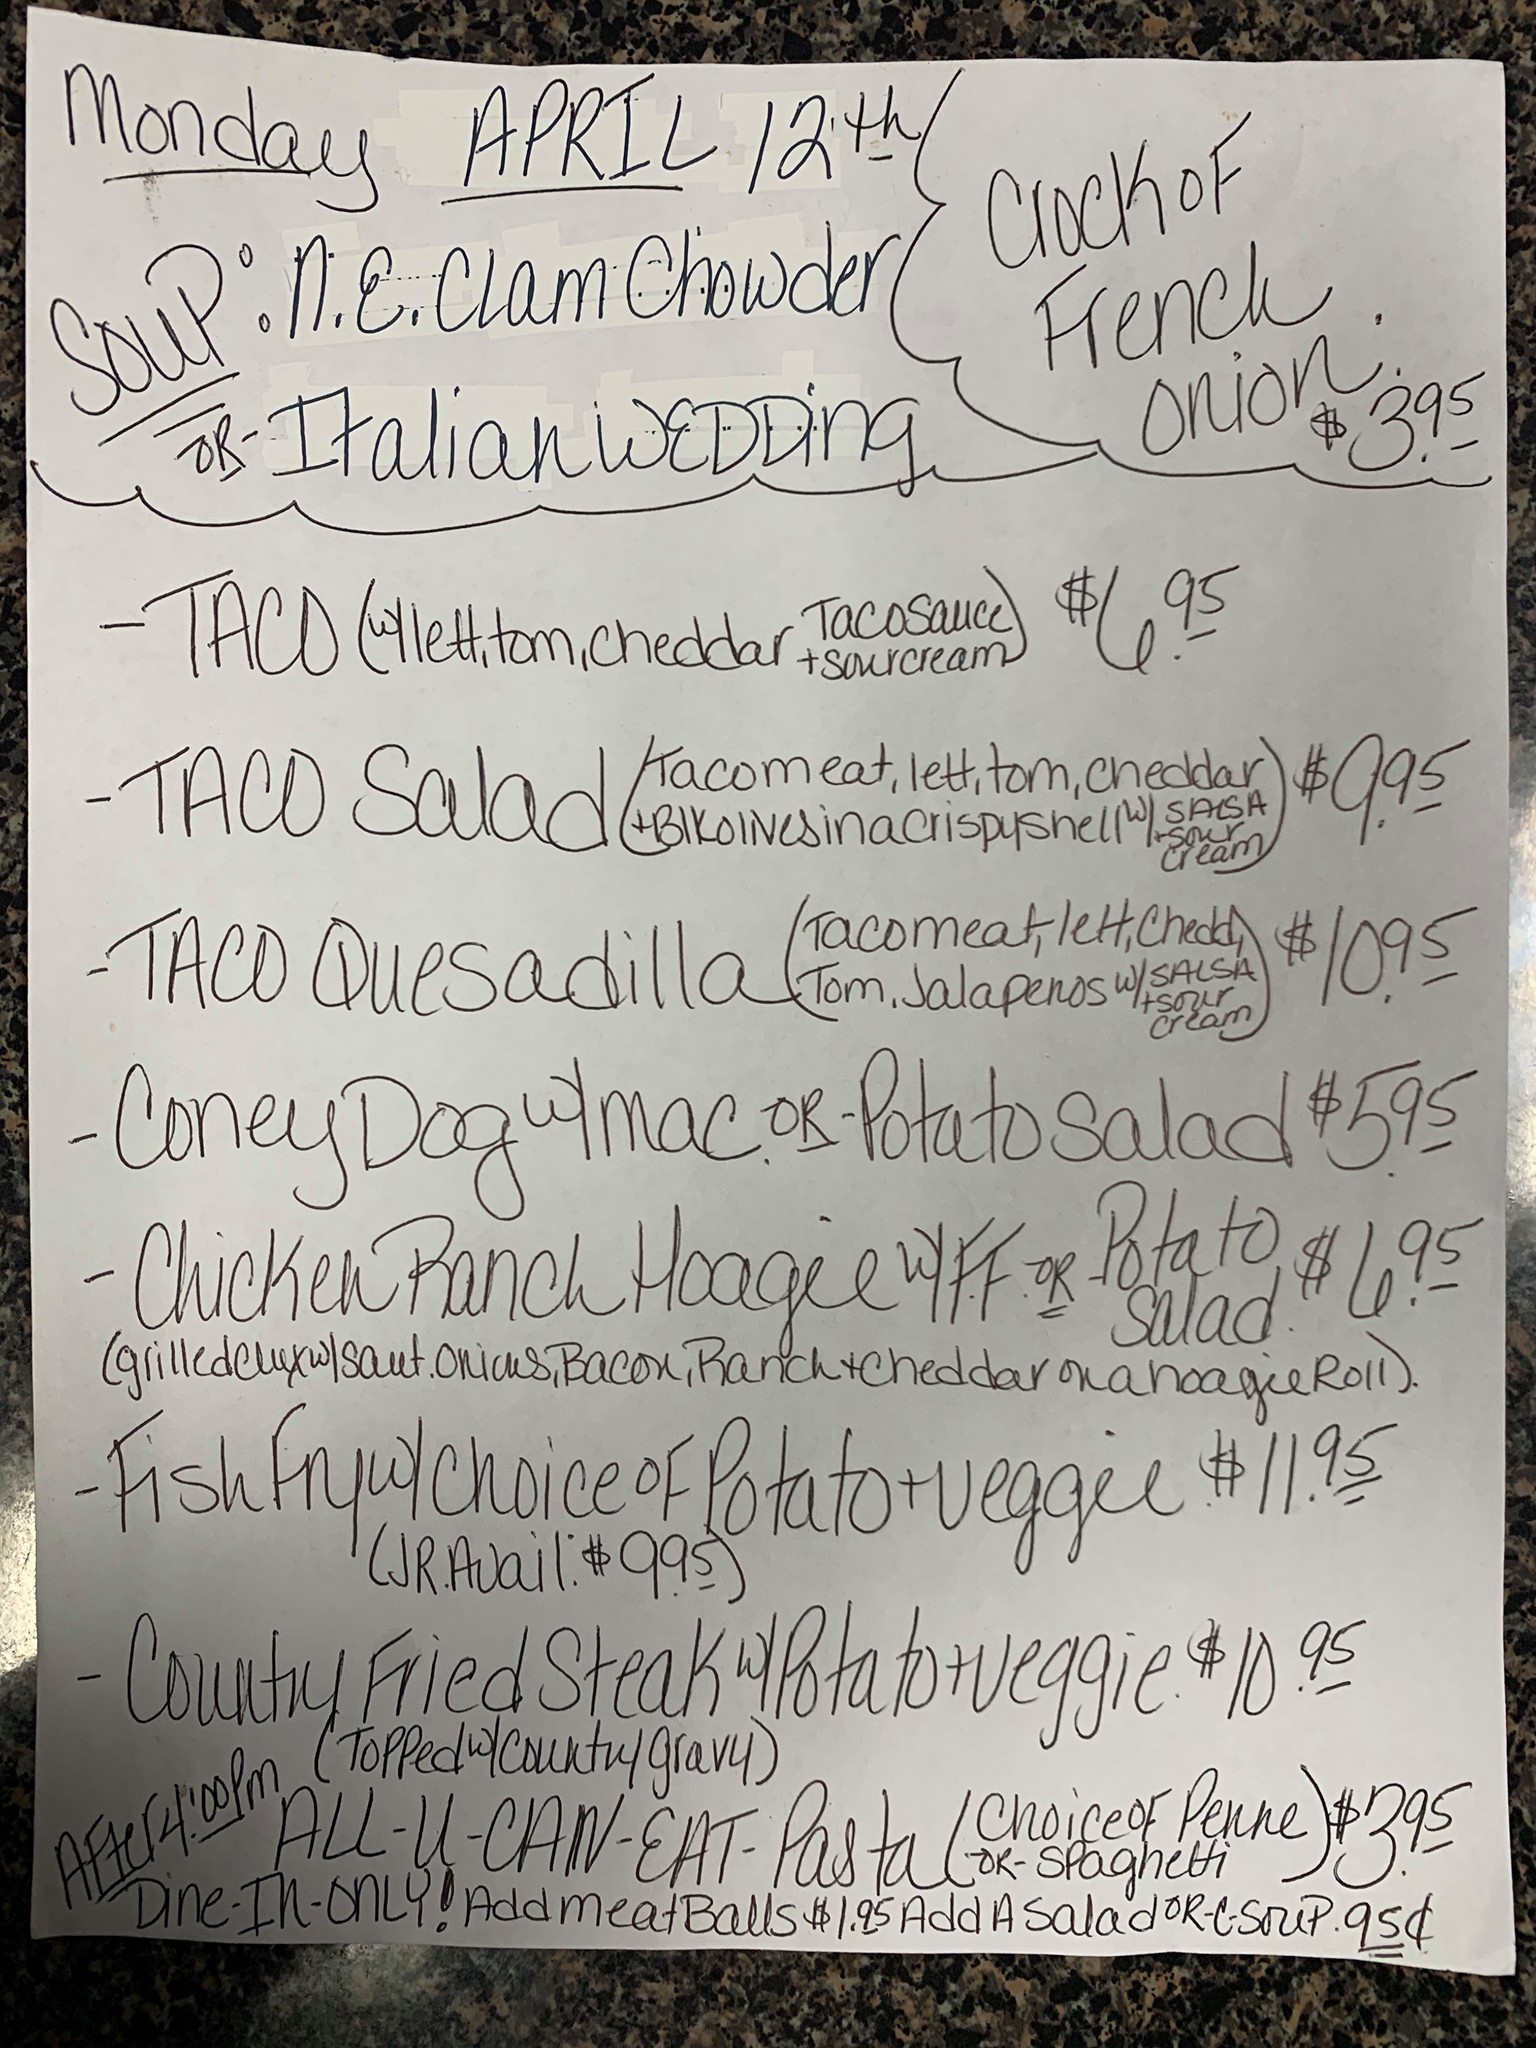 Monday APRIL 12th
SOUP: N.E. Clam Chowder
-OR- Italian WEDDing
Crock OF
French
Onion.
$3.95
- TACO (w/ lett, tom, cheddar Taco Sauce + sour cream) $6.95
- TACO Salad (Taco meat, lett, tom, cheddar $9.95
+ Blk olives in a crispy shell w/ SALSA + sour cream)
- TACO Quesadilla (Taco meat, lett, chedd, $10.95
Tom, Jalapenos w/ SALSA + sour cream)
- Coney Dog w/ mac. -OR- Potato Salad $5.95
- Chicken Ranch Hoagie w/ F.F. -OR- Potato Salad. $6.95
(grilled chix w/ saut. onions, Bacon, Ranch + cheddar on a hoagie Roll).
- Fish Fry w/ choice OF Potato + veggie $11.95
(JR. Avail. $9.95)
- Country Fried Steak w/ Potato + veggie. $10.95
(Topped w/ country gravy)
After 4:00pm
ALL-U-CAN-EAT-Pasta (choice OF Penne -OR- spaghetti) $3.95
Dine-In-ONLY! Add meatBalls $1.95 Add A Salad OR-C-SOUP. 95¢